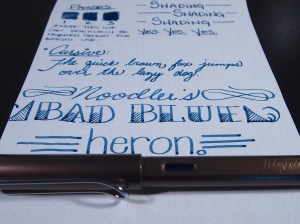 Passes
1 2 3
Shading
Shading
Shading
Yes Yes Yes
"Cursive:
The quick brown fox jumped
over the lazy dog."
Noodler's
BAD BLUE
heron.